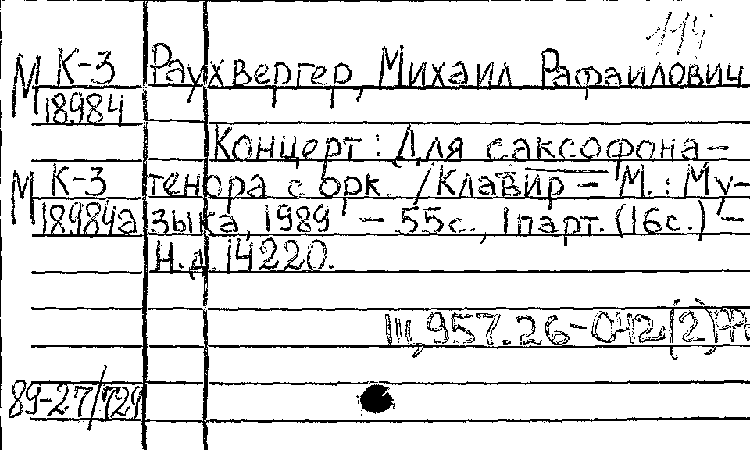 114
М К-3 Раухвергер, Михаил Рафаилович
18984
Концерт: Для саксофона-
М К-3 тенора с орк. /Клавир – М.: Му-
18984а зыка, 1989 – 55с., 1парт. (16с.) –
Н.д. 14220.
Ш,957.26-042(2)
89-27/729